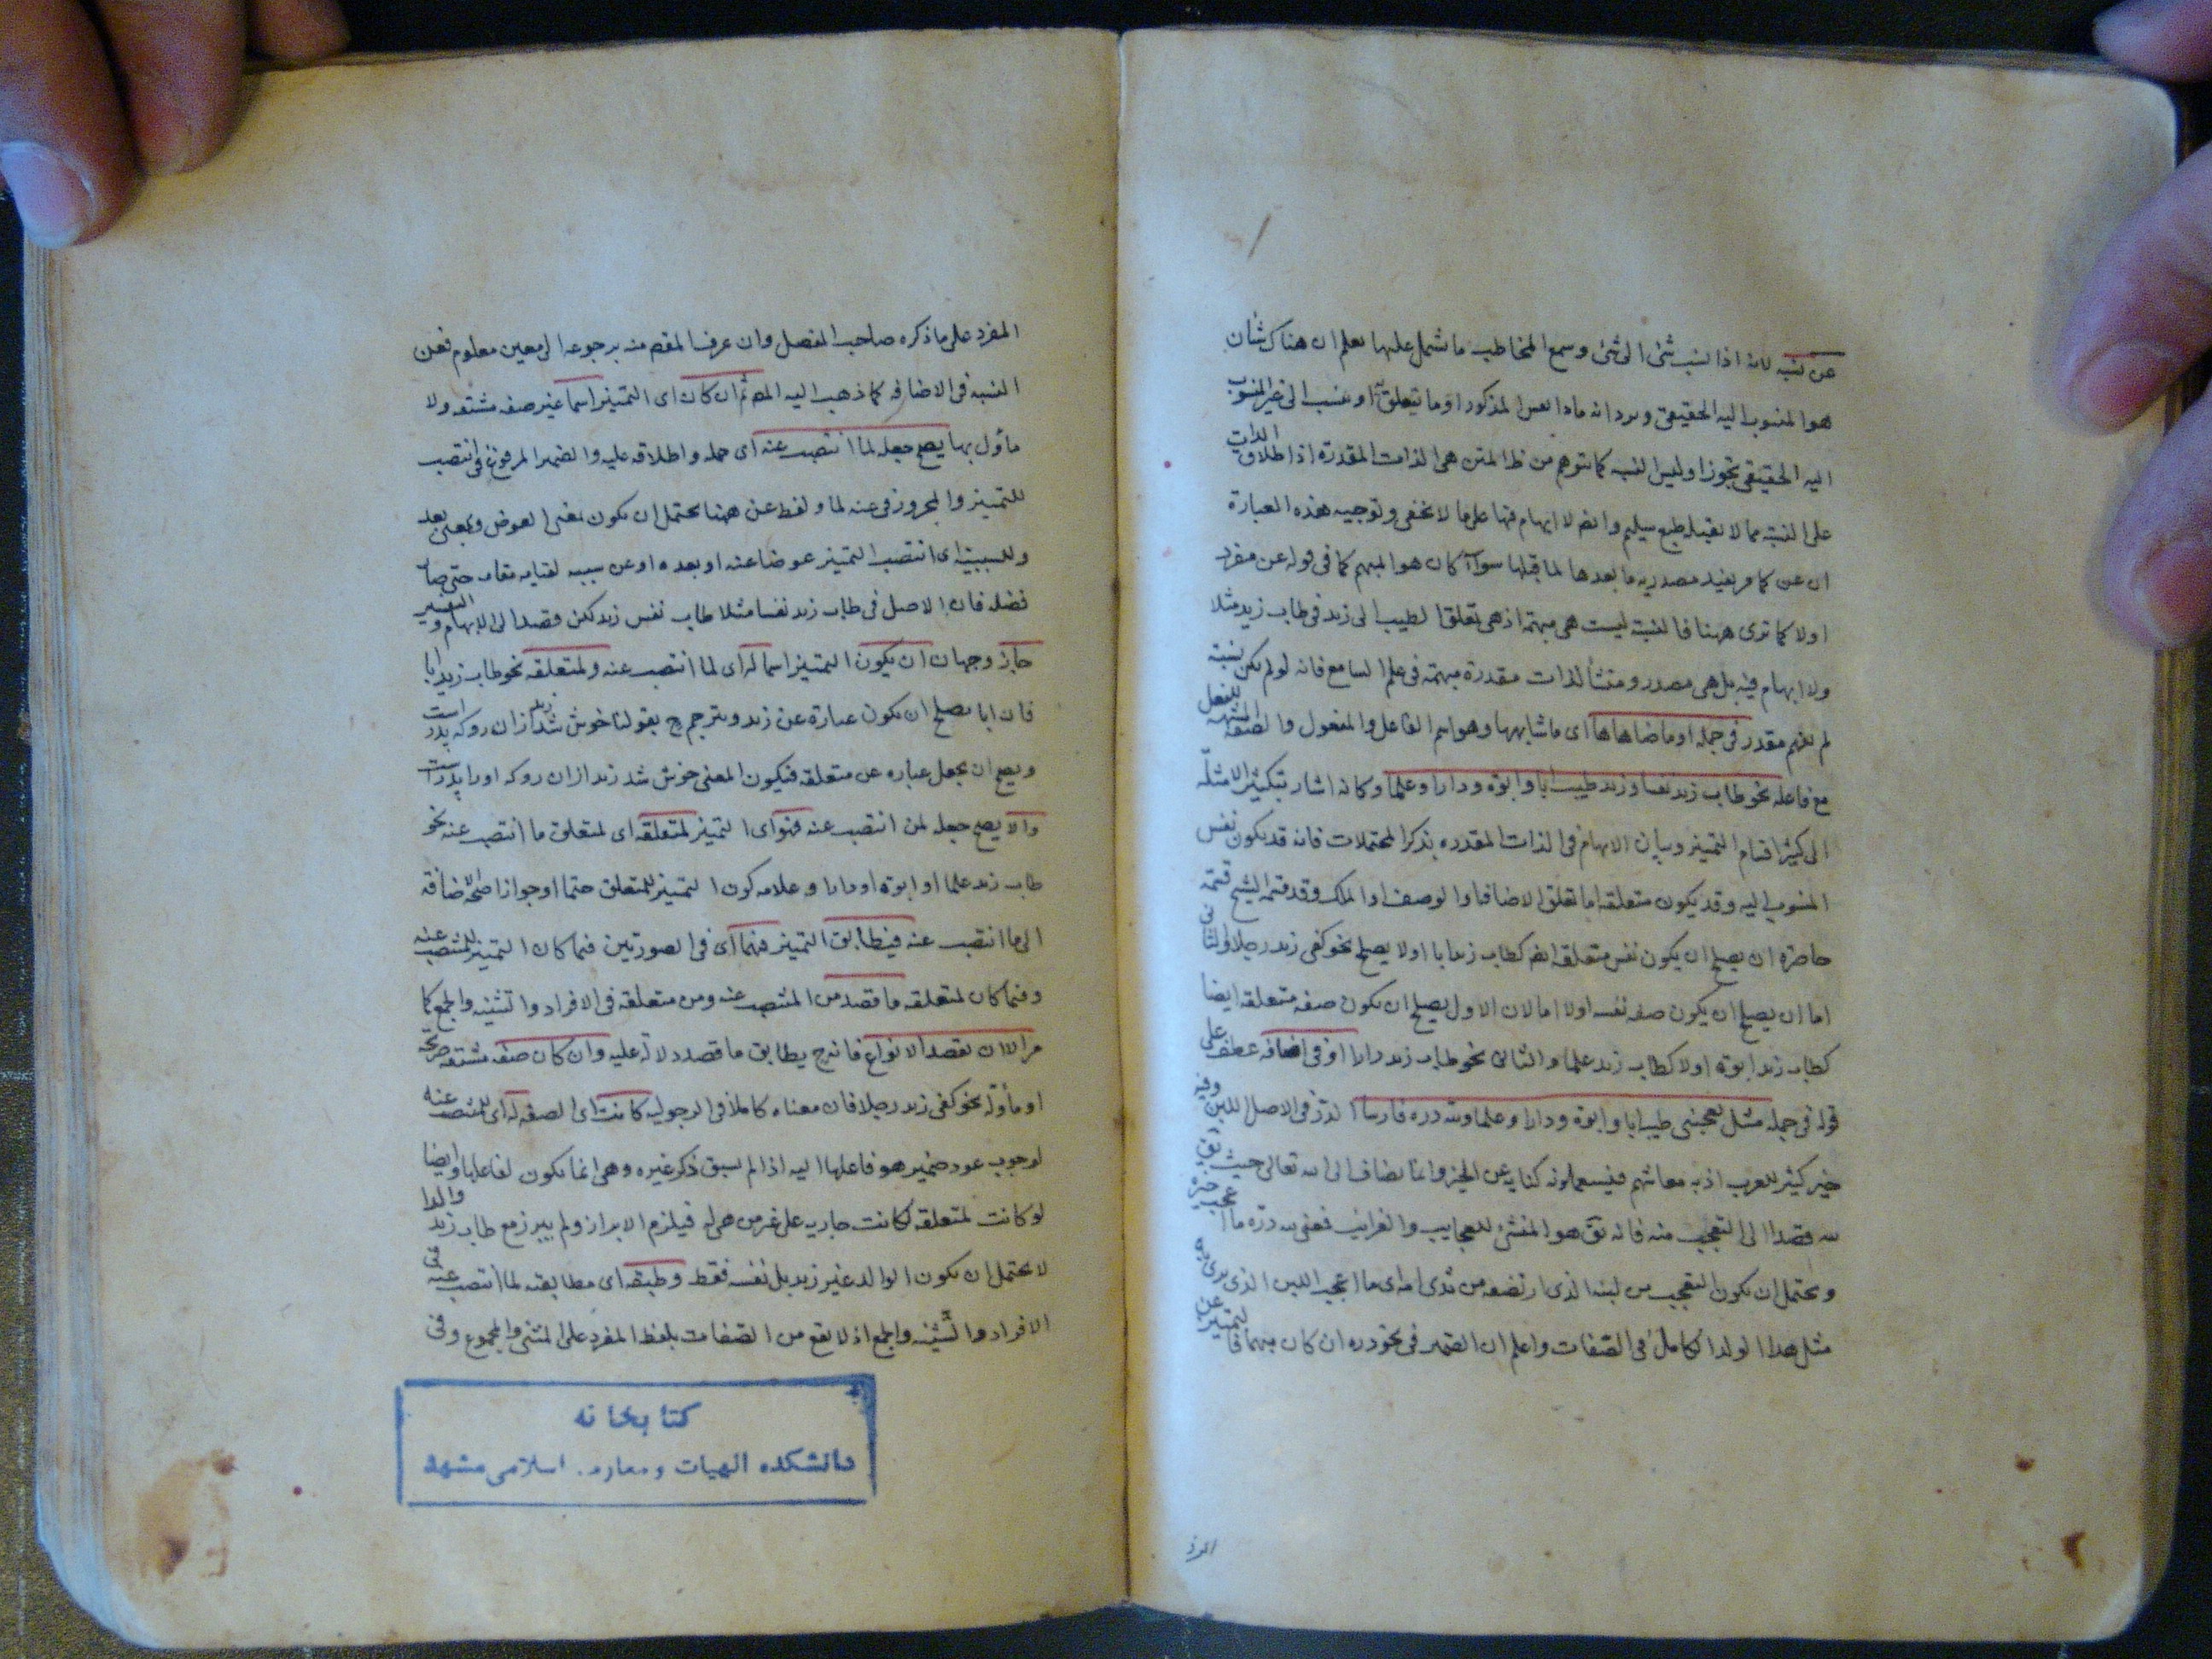 عن نسبة لانه اذا نسب شئ الى شئ وسمع المخاطب ما شمل عليها يعلم ان هناك شأن
هو المنسوب اليه الحقيقى ويرد انه ماذا نفس المذكور او ما يتعلق او ينسب الى غير المنسوب
اليه الحقيقى تجوزا وليس النسبة كما يتوهم من ظ المتن هى الذات المقدرة اذ اطلاق الذات
على النسبة مما لا يقبله طبع سليم وايضا لا ابهام فيها على ما لا يخفى وتوجيه هذه العبارة
ان عن كما مر يفيد مصدرية ما بعدها لما قبلها سواء كان هو المبهم كما فى قوله عن مفرد
اولا كما ترى ههنا فالنسبة ليست هى مبهمة اذ هى تعلق الطيب الى زيد فى طاب زيد مثلا
ولا ابهام فيه بل هى مصدر ومنشأ لذات مقدرة مبهمة فى علم السامع فانه لو لم يكن نسبة
لم يفهم مقدر فى جملة او ما ضاهاها اى ما شابهها وهو اسم الفاعل والمفعول والصفة المشبهة للفعل
مع فاعله نحو طاب زيد نفسا وزيد طيب ابا وابوة ودارا وعلما وكانه اشار بتكثير الامثلة
الى كثير اقسام التميز وبيان الابهام فى الذات المقدره بذكر المحتملات فانه قد يكون نفس
المنسوب اليه وقد يكون متعلقه اما تعلق الاضافة او الوصف او الملك وقد قسمه الشيخ قسمة
حاضرة ان يصلح ان يكون نفس متعلقه ايضا كطاب زيد ابا اولا يصلح نحو كفى زيد رجلا والثانى
اما ان يصلح ان يكون صفة نفسه اولا اما لان الاول يصلح ان يكون صفه متعلقه ايضا
كطاب زيد ابوة اولا كطاب زيد علما والثانى نحو طاب زيد دارا او فى اضافة عطف على
قوله فى جملة مثل يعجبنى طيبه ابا وابوة ودارا وعلما ولله دره فارسا الدر فى الاصل اللبن وفيه
خير كثير للعرب اذ به معاشهم فيستعملونه كناية عن الخير وانما يضاف الى الله تعالى حيث يق
لله قصدا الى التعجب منه فانه تق هو المنشئ للعجايب والغرايب فمعنى لله دره ما اعجب خيره
ويحتمل ان يكون التعجب من لبنه الذى ارتضعه من ثدى امه اى ما اعجب اللبن الذى يربى به
مثل هذا الولد الكامل فى الصفات واعلم ان الضمير فى نحو دره ان كان مبهما فالتميز عن
المفرد
المفرد على ما ذكره صاحب المفصل وان عرف المقصم منه برجوعه الى معين معلوم فعن
النسبة فى الاضافة كما ذهب اليه المص ثم ان كان اى التميز اسما غير صفه مشتقه ولا
مأول بها يصح جعله لما انتصب عنه اى حمله واطلاقه عليه والضمير المرفوع فى انتصب
للتميز والمجرور فى عنه لما ولفظ عن ههنا يحتمل ان يكون بمعنى العوض وبمعنى بعد
وللسببية اى انتصب التميز عوضا عنه او بعده او عن سببه لقيامه مقامه حتى صار
فضلة فان الاصل فى طاب زيد نفسا مثلا طاب نفس زيد لكن قصدا الى الابهام والتفسير
جاز وجهان ان يكون التميز اسما له اى لما انتصب عنه ولمتعلقه نحو طاب زيد ابا
فان ابا يصلح ان يكون عبارة عن زيد ويترجم ح بقولنا خوش شد زيد ازان رو كه پدر است
ويصح ان يجعل عباره عن متعلقه فيكون المعنى خوش شد زيد ازان رو كه او را پدر است
والا يصح جعله لمن انتصب عنه فهو اى التميز لمتعلقه اى لمتعلق ما انتصب عنه نحو
طاب زيد علما او ابوة او دارا وعلامه كون التميز للمتعلق حتما او جوازا صحة اضافة
الى ما انتصب عنه فيطابق التميز فيهما اى فى الصورتين فيما كان التميز للمنتصب عنه
وفيما كان لمتعلقه ما قصد من المنتصب عنه ومن متعلقه فى الافراد والتثنيه والجمع كما
مر الا ان يقصد الانواع فانه ح يطابق ما قصد دلالة عليه وان كان صفه مشتقه صريحة
او مأولة نحو كفى زيد رجلا فان معناه كاملا فى الرجوليه كانت اى الصفه له اى للمنتصب عنه
لوجوب عود ضمير هو فاعلها اليه اذا لم يسبق ذكر غيره وهى انما يكون لفاعلها وايضا
لو كانت لمتعلقه لكانت جاريه على غير من هى له فيلزم الابراز ولم يبرز مع طاب زيد والدا
لا يحتمل ان يكون الوالد غير زيد بل نفسه فقط وطبقه اى مطابقه لما انتصب عنه فى
الافراد والتثنيه والجمع اذ لا يقع من الصفات بلفظ المفرد على المثنى والمجموع وفى
كتابخانه
دانشكده الهيات ومعارف اسلامى مشهد